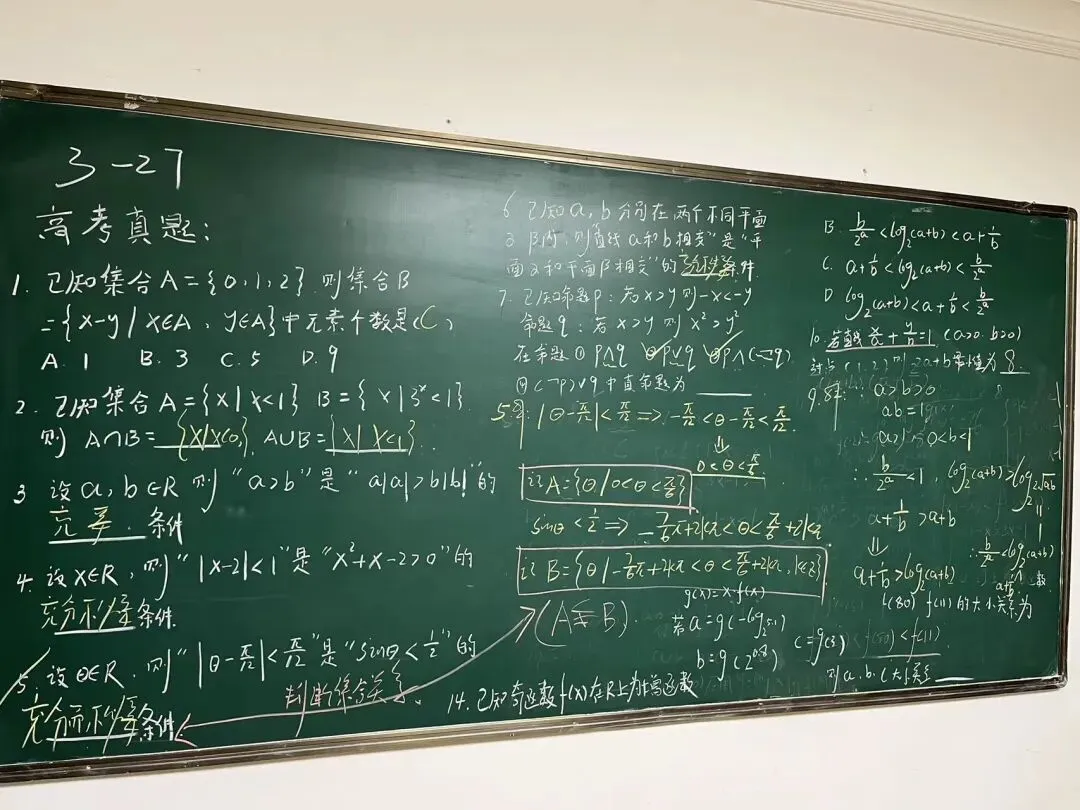 3-27
高考真题:
1. 已知集合A={0,1,2} 则集合B
={x-y | x∈A, y∈A}中元素个数是(C)
A. 1 B. 3 C. 5 D. 9
2. 已知集合A={x|x<1} B={x|3ˣ<1}
则 A∩B={x|x<0}, A∪B={x|x<1}.
3 设a,b∈R 则"a>b"是"a|a|>b|b|"的
充要.条件
4. 设x∈R,则"|x-2|<1"是"x²+x-2>0"的
充分不必要条件
5. 设θ∈R.则"|θ-π/12|<π/12"是"sinθ<1/2"的
充分而不必要条件
判断集合关系
6 已知a,b分别在两个不同平面
α β内,则"直线a和b相交"是"平
面α和平面β相交"的充分不必要条件.
7. 已知命题p:若x>y则-x<-y
命题q:若x>y则x²>y²
在命题①p∧q ②p∨q ③p∧(¬q)
④(¬p)∨q中真命题为
5题:|θ-π/12|<π/12 => -π/12<θ-π/12<π/12
⇓
0<θ<π/6
记A={θ|0<θ<π/6}
sinθ<1/2 => -7/6π+2kπ<θ<π/6+2kπ
记B={θ|-7/6π+2kπ<θ<π/6+2kπ,k∈Z}
(A⫋B).
g(x)=x·f(x)
若a=g(-log₂5.1)
b=g(2^0.8)
c=g(3)
则a,b,c大小关系
14.已知奇函数f(x)在R上为增函数
B. b/2ᵃ<log₂(a+b)<a+1/b
C. a+1/b<log₂(a+b)<b/2ᵃ
D log₂(a+b)<a+1/b<b/2ᵃ
10.若直线x/a+y/b=1(a>0.b>0)
过点(1,2)则2a+b最小值为8
9.解: a>b>0
ab=1
∴a>1 0<b<1
∴b/2ᵃ<1, log₂(a+b)>log₂2√ab
a+1/b>a+b
⇓
a+1/b>log₂(a+b)
∴b/2ᵃ<log₂(a+b)
<a+1/b
f(11)的大小关系为
f(80)<f(11)